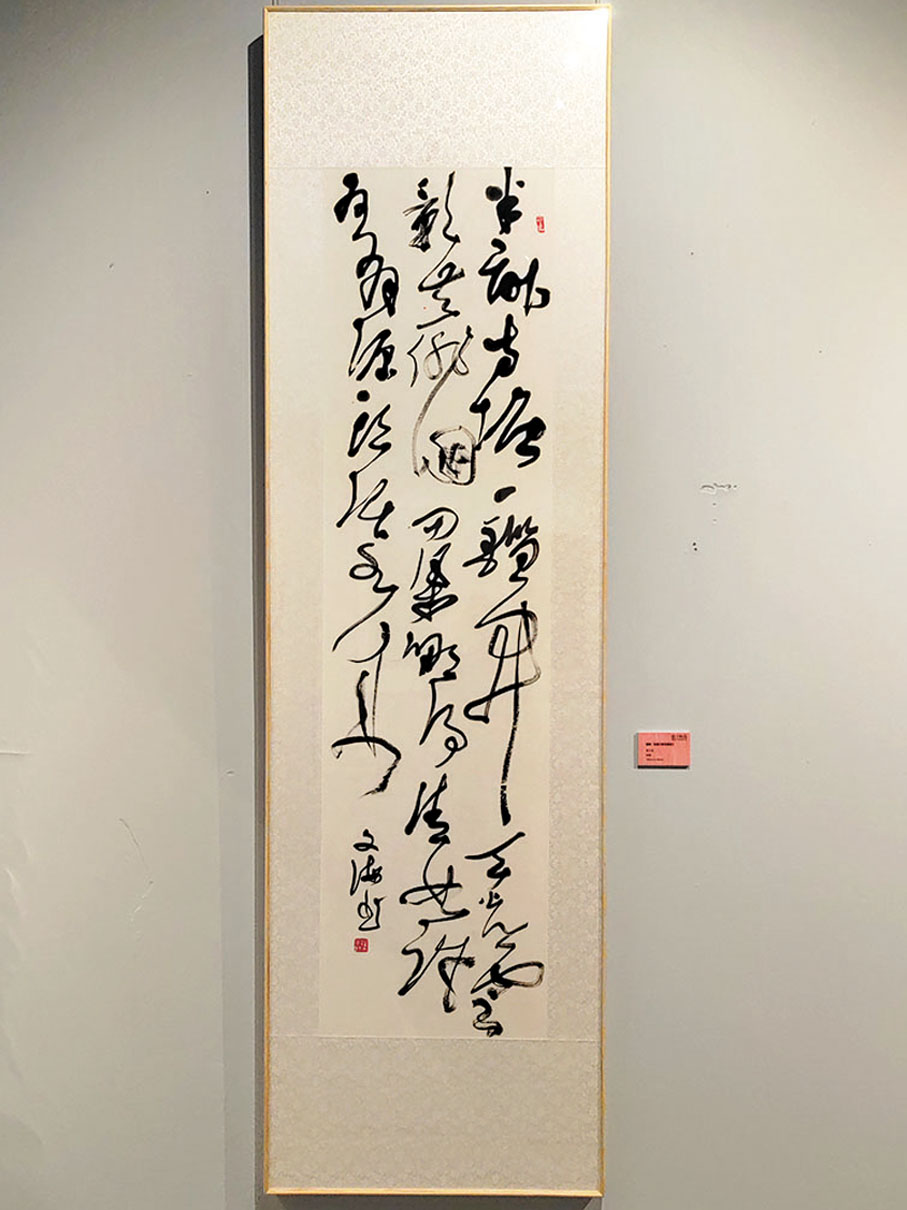 半畝方塘一鑑開天光雲
影共徘徊問渠那得清如許
為有源頭活水來
文海书